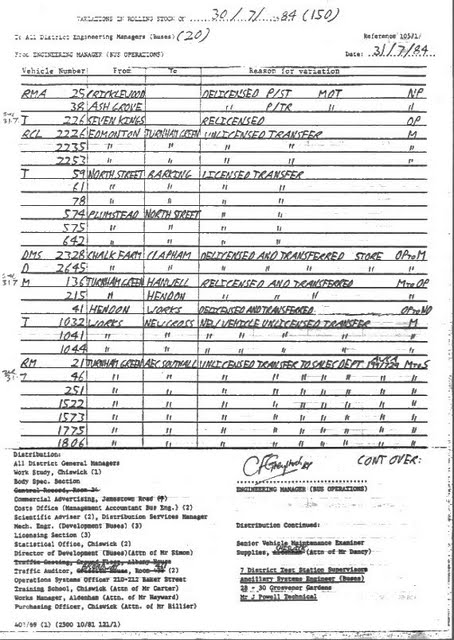 VARIATIONS IN ROLLING STOCK OF 30/7/84 (150)
To All District Engineering Managers (Buses) (20)
Reference 105/1/
From ENGINEERING MANAGER (BUS OPERATIONS)
Date: 31/7/84
Vehicle Number From To Reason for variation
RMA 25 CRICKLEWOOD DELICENSED P/ST MOT NP
38 ASH GROVE " P/TR " "
31.7 T 226 SEVEN KINGS RELICENSED OP
RCL 2226 EDMONTON TURNHAM GREEN UNLICENSED TRANSFER M
2235 " " " "
2253 " " " "
T 59 NORTH STREET BARKING LICENSED TRANSFER
61 " " " "
78 " " " "
574 PLUMSTEAD NORTH STREET " "
575 " " " "
642 " " " "
DMS 2328 CHALK FARM CLAPHAM DELICENSED AND TRANSFERRED STORE OP to M
D 2645 " " " " " " "
31.7 M 136 TURNHAM GREEN HANWELL RELICENSED AND TRANSFERRED M to OP
215 " HENDON " " " "
41 HENDON WORKS DELICENSED AND TRANSFERRED OP to NO
T 1032 WORKS NEW CROSS NEW VEHICLE UNLICENSED TRANSFER M
1041 " " " " " " "
1044 " " " " " " "
RM 21 TURNHAM GREEN AEC SOUTHALL UNLICENSED TRANSFER TO SALES DEPT M to S
46 " " " " " " " " "
251 " " " " " " " " "
1522 " " " " " " " " "
1573 " " " " " " " " "
1775 " " " " " " " " "
1806 " " " " " " " " "
Distribution:
All District General Managers
Work Study, Chiswick (1)
Body Spec. Section
Central Record, Room
Commercial Advertising, Jamestown Rd
Costs Office (Management Accountant Bus Eng.) (2)
Scientific Adviser (2), Distribution Services Manager
Mech. Engr. (Development Buses) (3)
Licensing Section (3)
Statistical Office, Chiswick (2)
Director of Development (Buses)(Attn of Mr Simon)
Traffic Auditor,
Operations Systems Officer 210-212 Baker Street
Training School, Chiswick (Attn of Mr Carter)
Works Manager, Aldenham (Attn of Mr Hayward)
Purchasing Officer, Chiswick (Attn of Mr Billier)
CONT OVER:
ENGINEERING MANAGER (BUS OPERATIONS)
Distribution Continued:
Senior Vehicle Maintenance Examiner
Supplies, (Attn of Mr Dancy)
7 District Test Station Supervisors
Ancillary Systems Engineer (Buses)
28 - 30 Grosvenor Gardens
Mr J Powell Technical
(1) (2500 10/81 121/1)